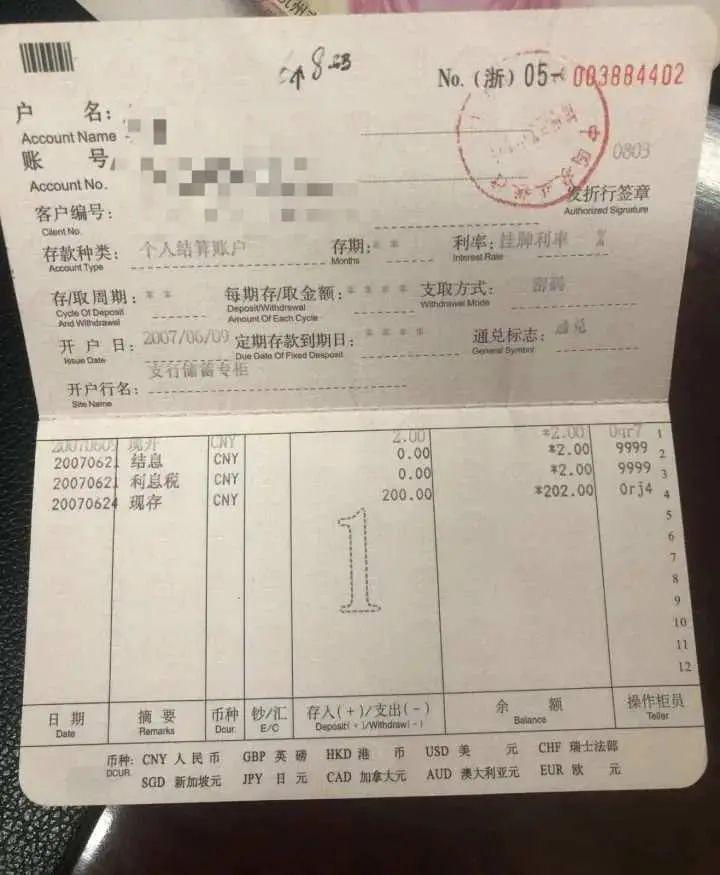 No. (浙) 05- 003884402
户 名:
Account Name
0803
账 号
Account No.
发折行签章
Authorized Signature
客户编号:
Cilent No.
存款种类: 个人结算账户 存期: * * 利率: 挂牌利率 %
Account Type Months Interest Rate
存/取周期: * * 每期存/取金额: * * * * 支取方式: 密码
Cycle Of Deposit And Withdrawal Deposit/Withdrawal Amount Of Each Cycle Withdrawal Mode
开 户 日: 2007/06/09 定期存款到期日: * * * * 通兑标志: 通兑
Issue Date Due Date Of Fixed Desposit General Symbol
开户行名: 支行储蓄专柜
Site Name
20070609 现开 CNY 2.00 *2.00 0qr7 1
20070621 结息 CNY 0.00 *2.00 9999 2
20070621 利息税 CNY 0.00 *2.00 9999 3
20070624 现存 CNY 200.00 *202.00 0rj4 4
5
6
7
8
9
10
11
12
1
日 期 摘 要 币种 钞/汇 存入(+)/支出(-) 余 额 操作柜员
Date Remarks Dcur. E/C Deposit(+)/Withdraw(-) Balance Teller
币种: CNY 人民币 GBP 英 镑 HKD 港 币 USD 美 元 CHF 瑞士法郎
DCUR. SGD 新加坡元 JPY 日 元 CAD 加拿大元 AUD 澳大利亚元 EUR 欧 元